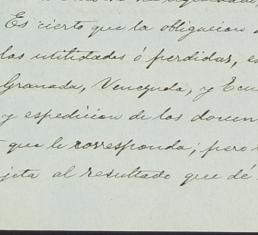 Es cierto que la obligacion
las utilidades ó perdidas, e
Granada, Venezuela, y Ecu
y espedicion de los docum
que le corresponda; pero
jeta al resultado que dé